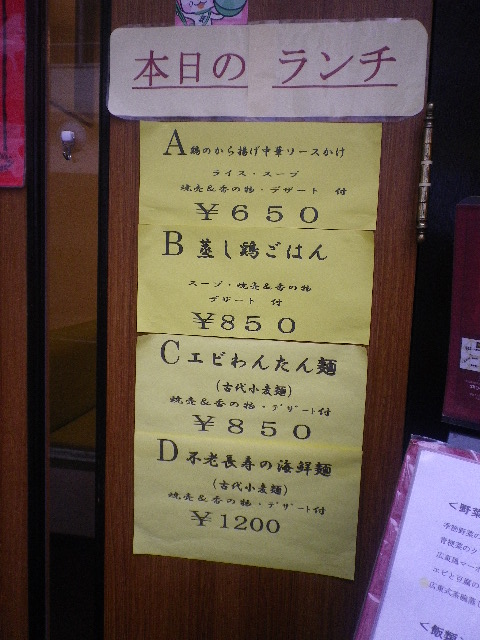 本日の ランチ
A 鶏のから揚げ中華ソースかけ
ライス・スープ
焼売&香の物・デザート 付
¥650
B 蒸し鶏ごはん
スープ・焼売&香の物
デザート 付
¥850
C エビわんたん麺
(古代小麦麺)
焼売&香の物・デザート付
¥850
D 不老長寿の海鮮麺
(古代小麦麺)
焼売&香の物・デザート付
¥1200
<野菜
季節野菜の
青梗菜のク
広東風マーボ
エビと豆腐の
広東式茶碗蒸し
<飯類